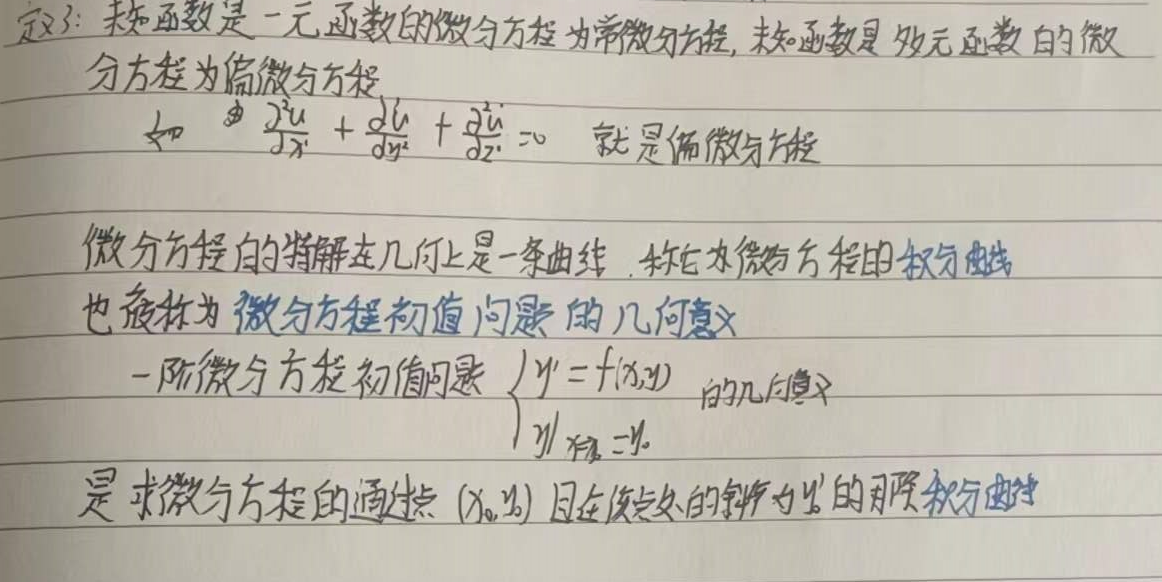 定义3: 未知函数是一元函数的微分方程为常微分方程, 未知函数是多元函数的微
分方程为偏微分方程
如 ∂²u/∂x² + ∂²u/∂y² + ∂²u/∂z² = 0 就是偏微分方程
微分方程的特解在几何上是一条曲线. 称它为微分方程的积分曲线
也被称为微分方程初值问题的几何意义
一阶微分方程初值问题 { y' = f(x,y) 的几何意义
y|x=x₀ = y₀
是求微分方程的通过点 (x₀, y₀) 且在该点处的斜率为 y₀' 的积分曲线